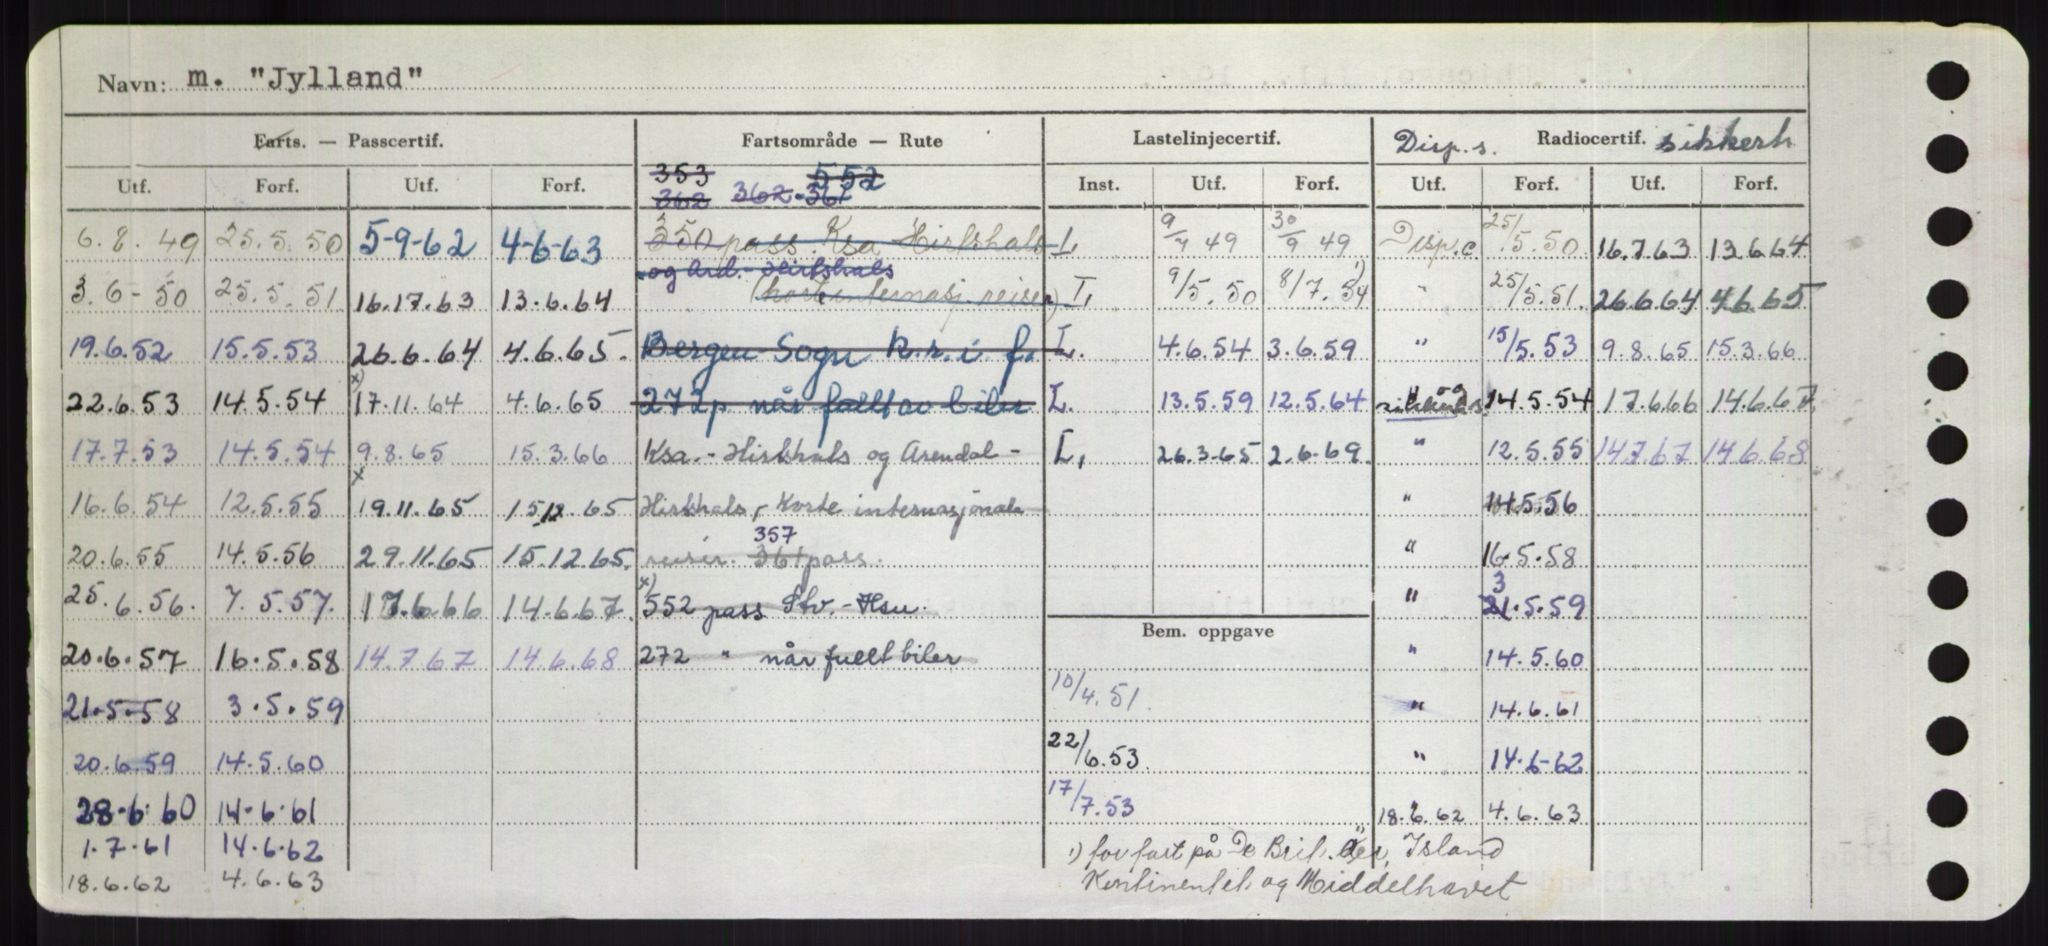 Navn: m. "Jylland"
Farts. — Passcertif. Fartsområde — Rute Lastelinjecertif. Disp. s. Radiocertif. sikkerh
353 552
Utf. Forf. Utf. Forf. 362 362 · 361 Inst. Utf. Forf. Utf. Forf. Utf. Forf.
6.8.49 25.5.50 5-9-62 4-6-63 350 pass Ksa Hirtshals L 9/7 49 30/9 49 Disp.c 25/5.50 16.7.63 13.6.64
og Ard. - Hirtshals
3.6-50 25.5.51 16.17.63 13.6.64 (korte internasj. reiser) L, 9/5.50 8/7.54 1) " 25/5.51 26.6.64 4.6.65
19.6.52 15.5.53 26.6.64 4.6.65. Bergen - Sogn k.r.i f. L. 4.6.54 3.6.59 " 15/5.53 9.8.65 15.3.66
22.6.53 14.5.54 x) 17.11.64 4.6.65 272 p når fullt av biler L. 13.5.59 12.5.64 14.5.54 17.6.66 14.6.67.
17.7.53 14.5.54 9.8.65 15.3.66 Ksa. - Hirtshals og Arendal - L, 26.3.65 2.6.69. " 12.5.55 14.7.67 14.6.68
16.6.54 12.5.55 x 19.11.65 15.12.65 Hirtshals, - Korte internasjonale " 14.5.56
20.6.55 14.5.56 29.11.65 15.12.65. reiser. 357 361 pass. " 16.5.58
25.6.56. 7.5.57. 17.6.66 14.6.67. x) 552 pass Stv. - Hsu. " 3 21.5.59
Bem. oppgave
20.6.57 16.5.58 14.7.67 14.6.68 272 " når fullt biler " 14.5.60
21.5.58 3.5.59 10/4.51. " 14.6.61
20.6.59 14.5.60 22/6.53. " 14.6-62
28-6-60 14-6-61 17/7.53 18.6.62 4.6.63
1.7.61 14.6.62 1) for fart på De Brit. Øer, Island
18.6.62 4.6.63 Kontinentet og Middelhavet